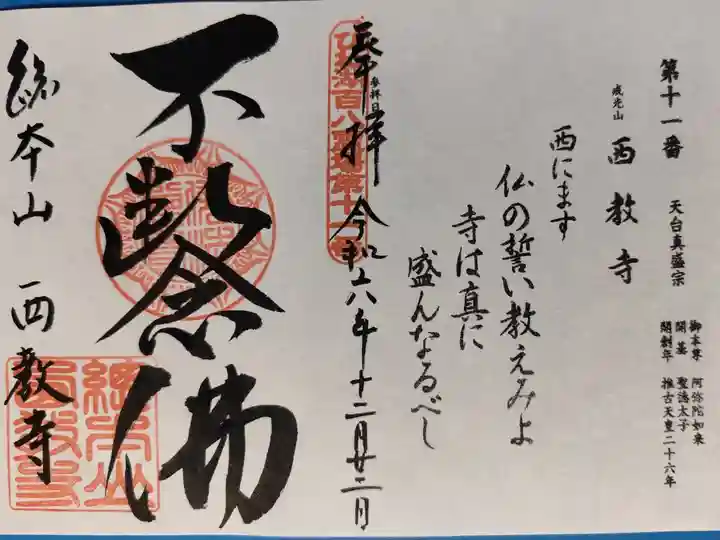 第十一番　天台真盛宗
御本尊　阿弥陀如来
開基　聖徳太子
開創年　推古天皇二十六年
戒光山　西教寺
西にます
仏の誓い教えみよ
寺は真に
盛んなるべし
参拝日
奉拝　令和六年十二月廿二日
びわ湖百八霊場第十一番
不斷念佛
總本山　西教寺
總本山西教寺